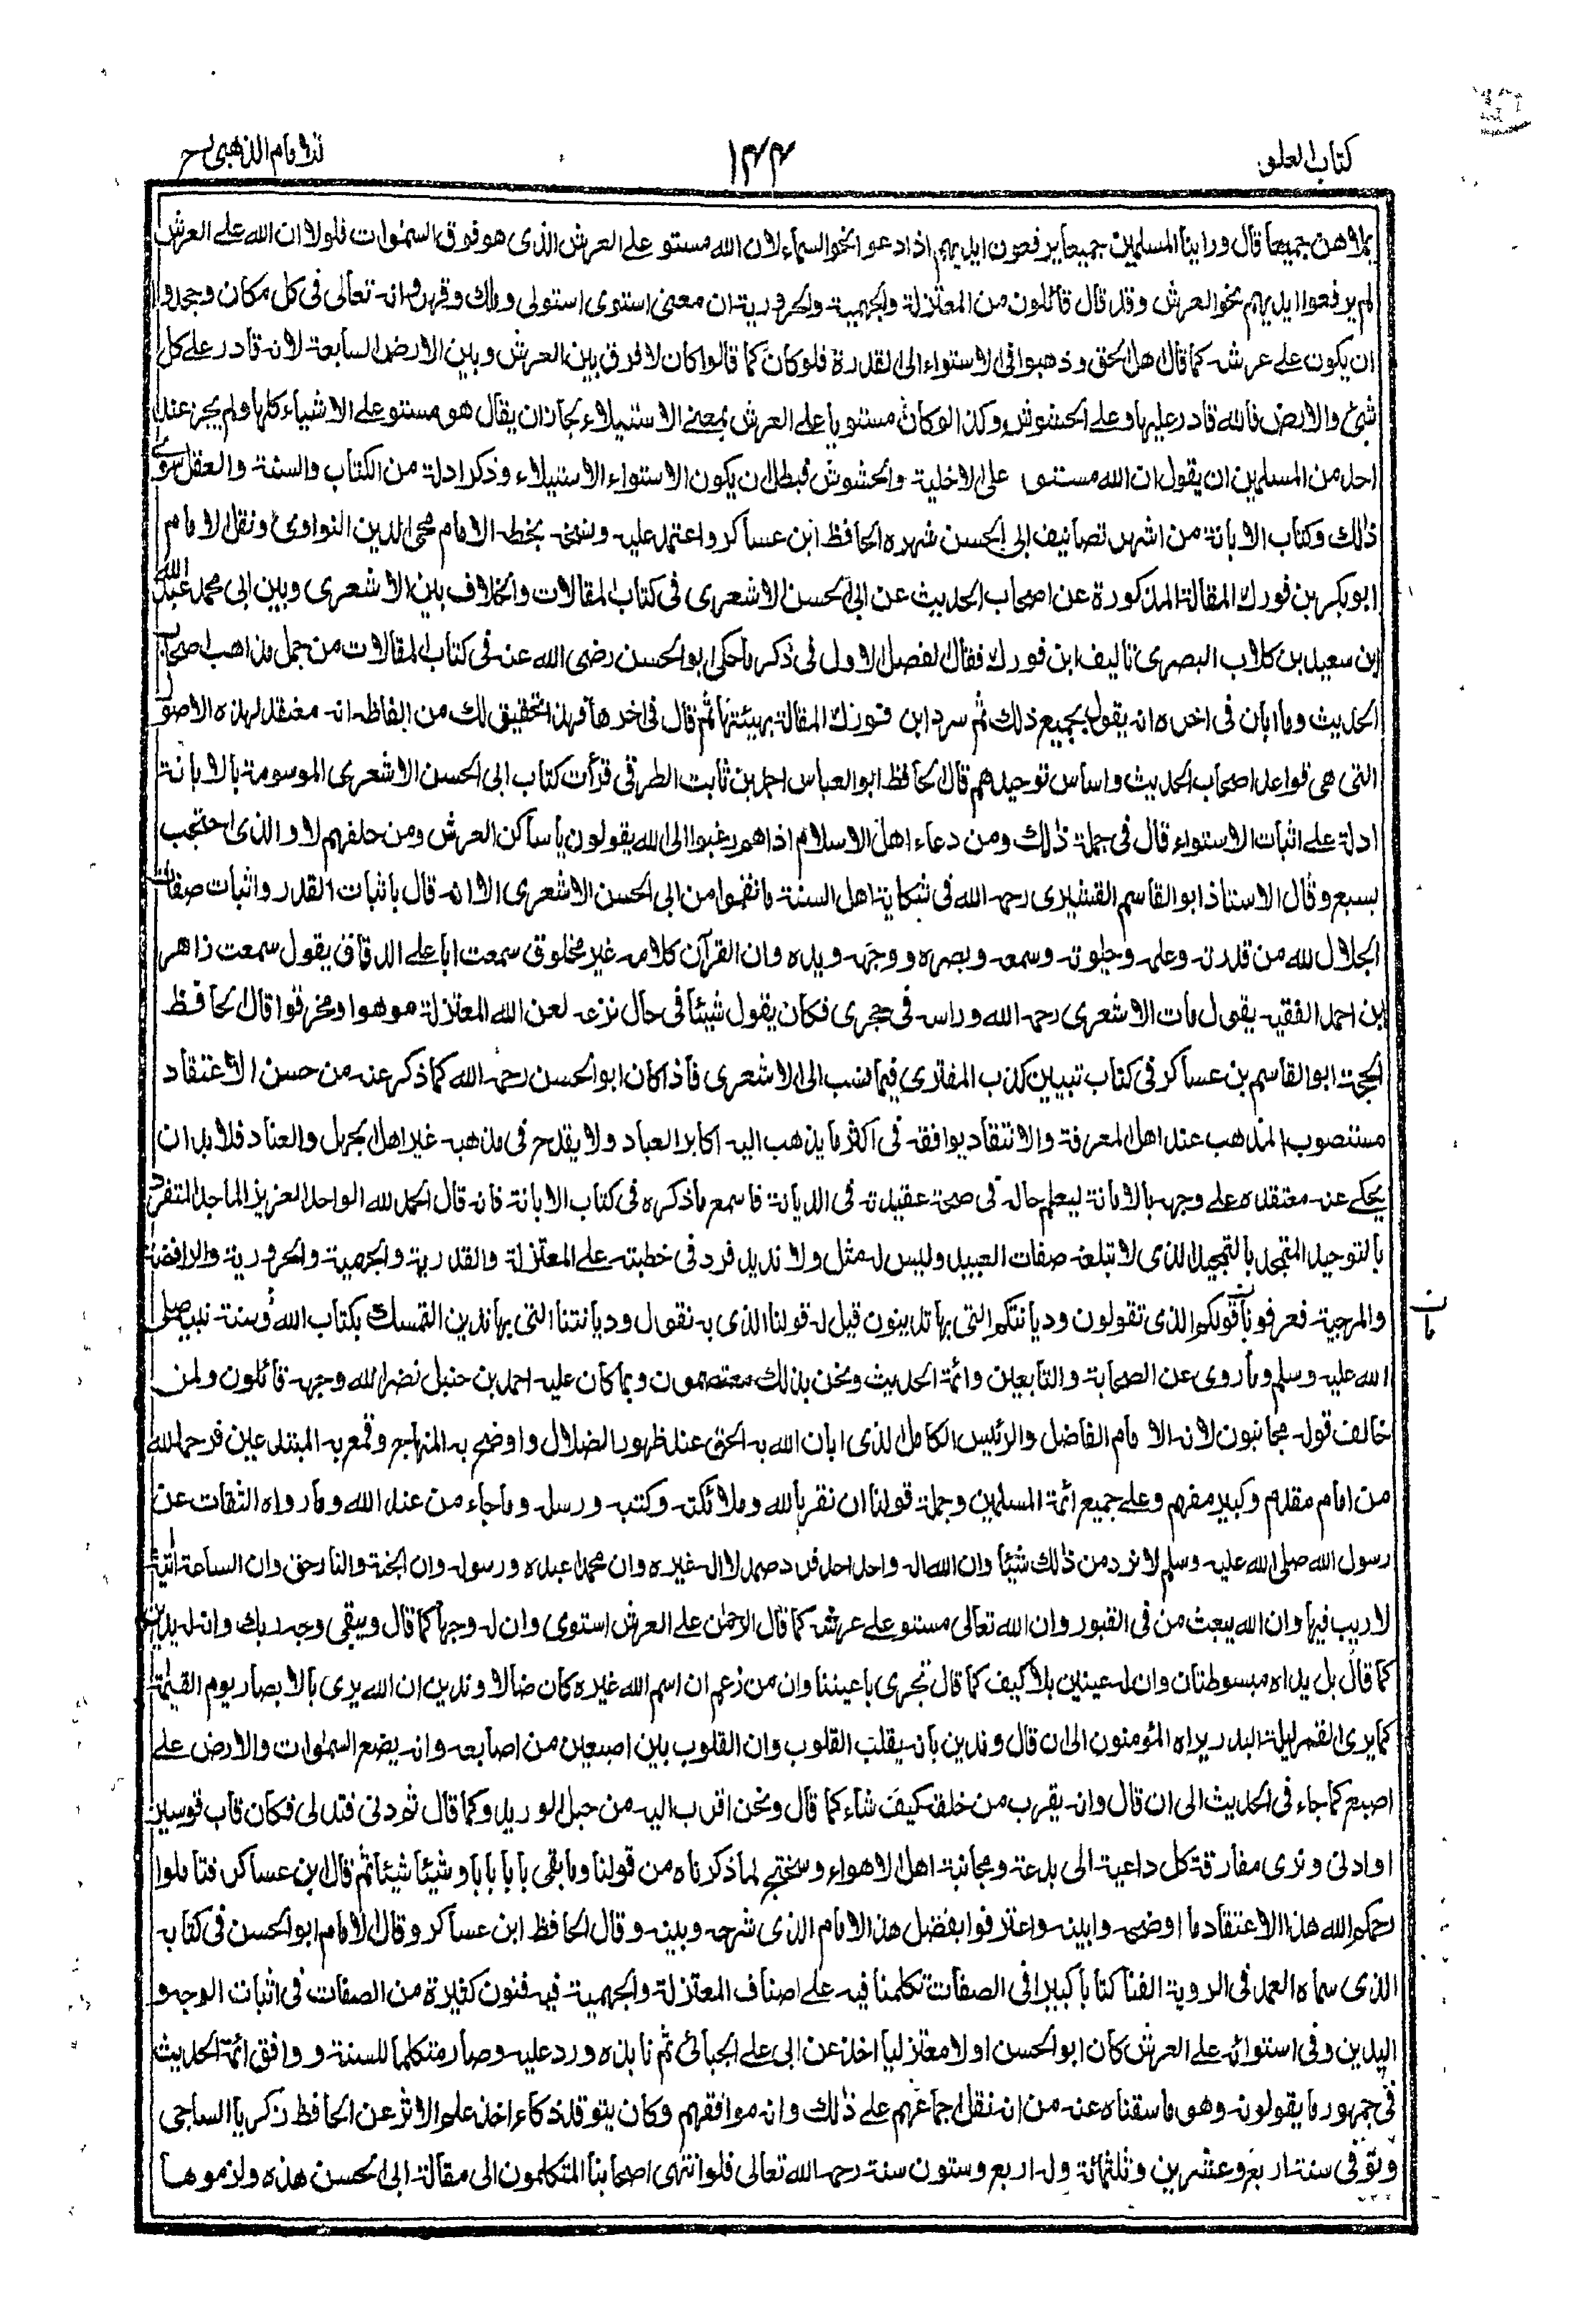 كتاب العلو
١٤٤
للامام الذهبي رح
يملاهن جميعا قال ورأينا المسلمين جميعا يرفعون ايديهم اذا دعوا نحو السماء لان الله مستو على العرش الذى هو فوق السموات فلولا ان الله على العرش
لم يرفعوا ايديهم نحو العرش وقد قال قائلون من المعتزلة والجهمية والحرورية ان معنى استوى استولى وملك وقهر وانه تعالى فى كل مكان وجحدوا
ان يكون على عرشه كما قال اهل الحق وذهبوا فى الاستواء الى القدرة فلو كان كما قالوا كان لا فرق بين العرش وبين الارض السابعة لانه قادر على كل
شئ والارض فالله قادر عليها وعلى الحشوش وكذا لو كان مستويا على العرش بمعنى الاستيلاء لجاز ان يقال هو مستو على الاشياء كلها ولم يجز عند
احد من المسلمين ان يقول ان الله مستو على الاخلية والحشوش فبطل ان يكون الاستواء الاستيلاء وذكر ادلة من الكتاب والسنة والعقل سوى
ذلك وكتاب الابانة من اشهر تصانيف ابى الحسن شهره الحافظ ابن عساكر واعتمد عليه ونسخه بخطه الامام محى الدين النواوى ونقل الامام
ابو بكر بن فورك المقالة المذكورة عن اصحاب الحديث عن ابى الحسن الاشعرى فى كتاب المقالات والخلاف بين الاشعرى وبين ابى محمد عبد الله
ابن سعيد بن كلاب البصرى تاليف ابن فورك فقال الفصل الاول فى ذكر ما حكى ابو الحسن رضى الله عنه فى كتاب المقالات من جمل مذاهب اصحاب
الحديث وما ابان فى اخره انه يقول بجميع ذلك ثم سرد ابن فورك المقالة بهيئتها ثم قال فى اخرها فهذا تحقيق لك من الفاظه انه معتقد لهذه الاصول
التى هى قواعد اصحاب الحديث واساس توحيدهم قال الحافظ ابو العباس احمد بن ثابت الطرقى قرأت كتاب ابى الحسن الاشعرى الموسومة بالابانة
ادلة على اثبات الاستواء قال فى جملة ذلك ومن دعاء اهل الاسلام اذا هم رغبوا الى الله يقولون يا ساكن العرش ومن حلفهم لا والذى احتجب
بسبع وقال الاستاذ ابو القاسم القشيرى رحمه الله فى شكاية اهل السنة ما نقموا من ابى الحسن الاشعرى الا انه قال باثبات القدر واثبات صفات
الجلال لله من قدرته وعلمه وحيوته وسمعه وبصره ووجهه ويده وان القرآن كلامه غير مخلوق سمعت ابا على الدقاق يقول سمعت زاهر
ابن احمد الفقيه يقول مات الاشعرى رحمه الله وراسه فى حجرى فكان يقول شيئا فى حال نزعه لعن الله المعتزلة موهوا ومخرقوا قال الحافظ
الحجة ابو القاسم بن عساكر فى كتاب تبيين كذب المفترى فيما نسب الى الاشعرى فاذا كان ابو الحسن رحمه الله كما ذكر عنه من حسن الاعتقاد
مستصوب المذهب عند اهل المعرفة والانتقاد يوافقه فى اكثر ما يذهب اليه اكابر العباد ولا يقدح فى مذهبه غير اهل الجهل والعناد فلا بد ان
يحكى عنه معتقده على وجهه بالامانة ليعلم حاله فى صحة عقيدته فى الديانة فاسمع ما ذكره فى كتاب الابانة فانه قال الحمد لله الواحد العزيز الماجد المتفرد
بالتوحيد المتمجد بالتمجيد الذى لا تبلغه صفات العبيد وليس له مثل ولا نديد فرد فى خطبته على المعتزلة والقدرية والجهمية والحرورية والرافضة
والمرجية فعرفونا قولكم الذى تقولون وديانتكم التى بها تدينون قيل له قولنا الذى به نقول وديانتنا التى بها ندين التمسك بكتاب الله وسنة نبيه صلى
الله عليه وسلم وما روى عن الصحابة والتابعين وائمة الحديث ونحن بذلك معتصمون وبما كان عليه احمد بن حنبل نضر الله وجهه قائلون ولمن
خالف قوله مجانبون لانه الامام الفاضل والرئيس الكامل الذى ابان الله به الحق عند ظهور الضلال واوضح به المنهاج وقمع به المبتدعين فرحمه الله
من امام مقدم وكبير مفهم وعلى جميع ائمة المسلمين وجملة قولنا ان نقر بالله وملائكته وكتبه ورسله وما جاء من عند الله وما رواه الثقات عن
رسول الله صلى الله عليه وسلم لا نرد من ذلك شيئا وان الله اله واحد احد فرد صمد لا اله غيره وان محمدا عبده ورسوله وان الجنة والنار حق وان الساعة اتية
لا ريب فيها وان الله يبعث من فى القبور وان الله تعالى مستو على عرشه كما قال الرحمن على العرش استوى وان له وجها كما قال ويبقى وجه ربك وان له يدين
كما قال بل يداه مبسوطتان وان له عينين بلا كيف كما قال تجرى باعيننا وان من زعم ان اسم الله غيره كان ضالا وندين ان الله يرى بالابصار يوم القيمة
كما يرى القمر ليلة البدر يراه المؤمنون الى ان قال وندين بانه يقلب القلوب وان القلوب بين اصبعين من اصابعه وانه يضع السموات والارض على
اصبع كما جاء فى الحديث الى ان قال وانه يقرب من خلقه كيف شاء كما قال ونحن اقرب اليه من حبل الوريد وكما قال ثم دنى فتدلى فكان قاب قوسين
او ادنى ونرى مفارقة كل داعية الى بدعة ومجانبة اهل الاهواء وسنحتج لما ذكرناه من قولنا وما بقى بابا بابا وشيئا شيئا ثم قال ابن عساكر فتاملوا
رحمكم الله هذا الاعتقاد ما اوضحه وابينه واعترفوا بفضل هذا الامام الذى شرحه وبينه وقال الحافظ ابن عساكر وقال الامام ابو الحسن فى كتابه
الذى سماه العمد فى الروية الفنا كتابا كبيرا فى الصفات تكلمنا فيه على اصناف المعتزلة والجهمية فيه فنون كثيرة من الصفات فى اثبات الوجه و
اليدين وفى استوائه على العرش كان ابو الحسن اولا معتزليا اخذ عن ابى على الجبائى ثم نابذه ورد عليه وصار متكلما للسنة ووافق ائمة الحديث
فى جمهور ما يقولونه وهو ما سقناه عنه من انه نقل اجماعهم على ذلك وانه موافقهم وكان يتوقد ذكاء اخذ علم الاثر عن الحافظ زكريا الساجى
وتوفى سنة اربع وعشرين وثلثمائة وله اربع وستون سنة رحمه الله تعالى فلو انتهى اصحابنا المتكلمون الى مقالة ابى الحسن هذه ولزموها